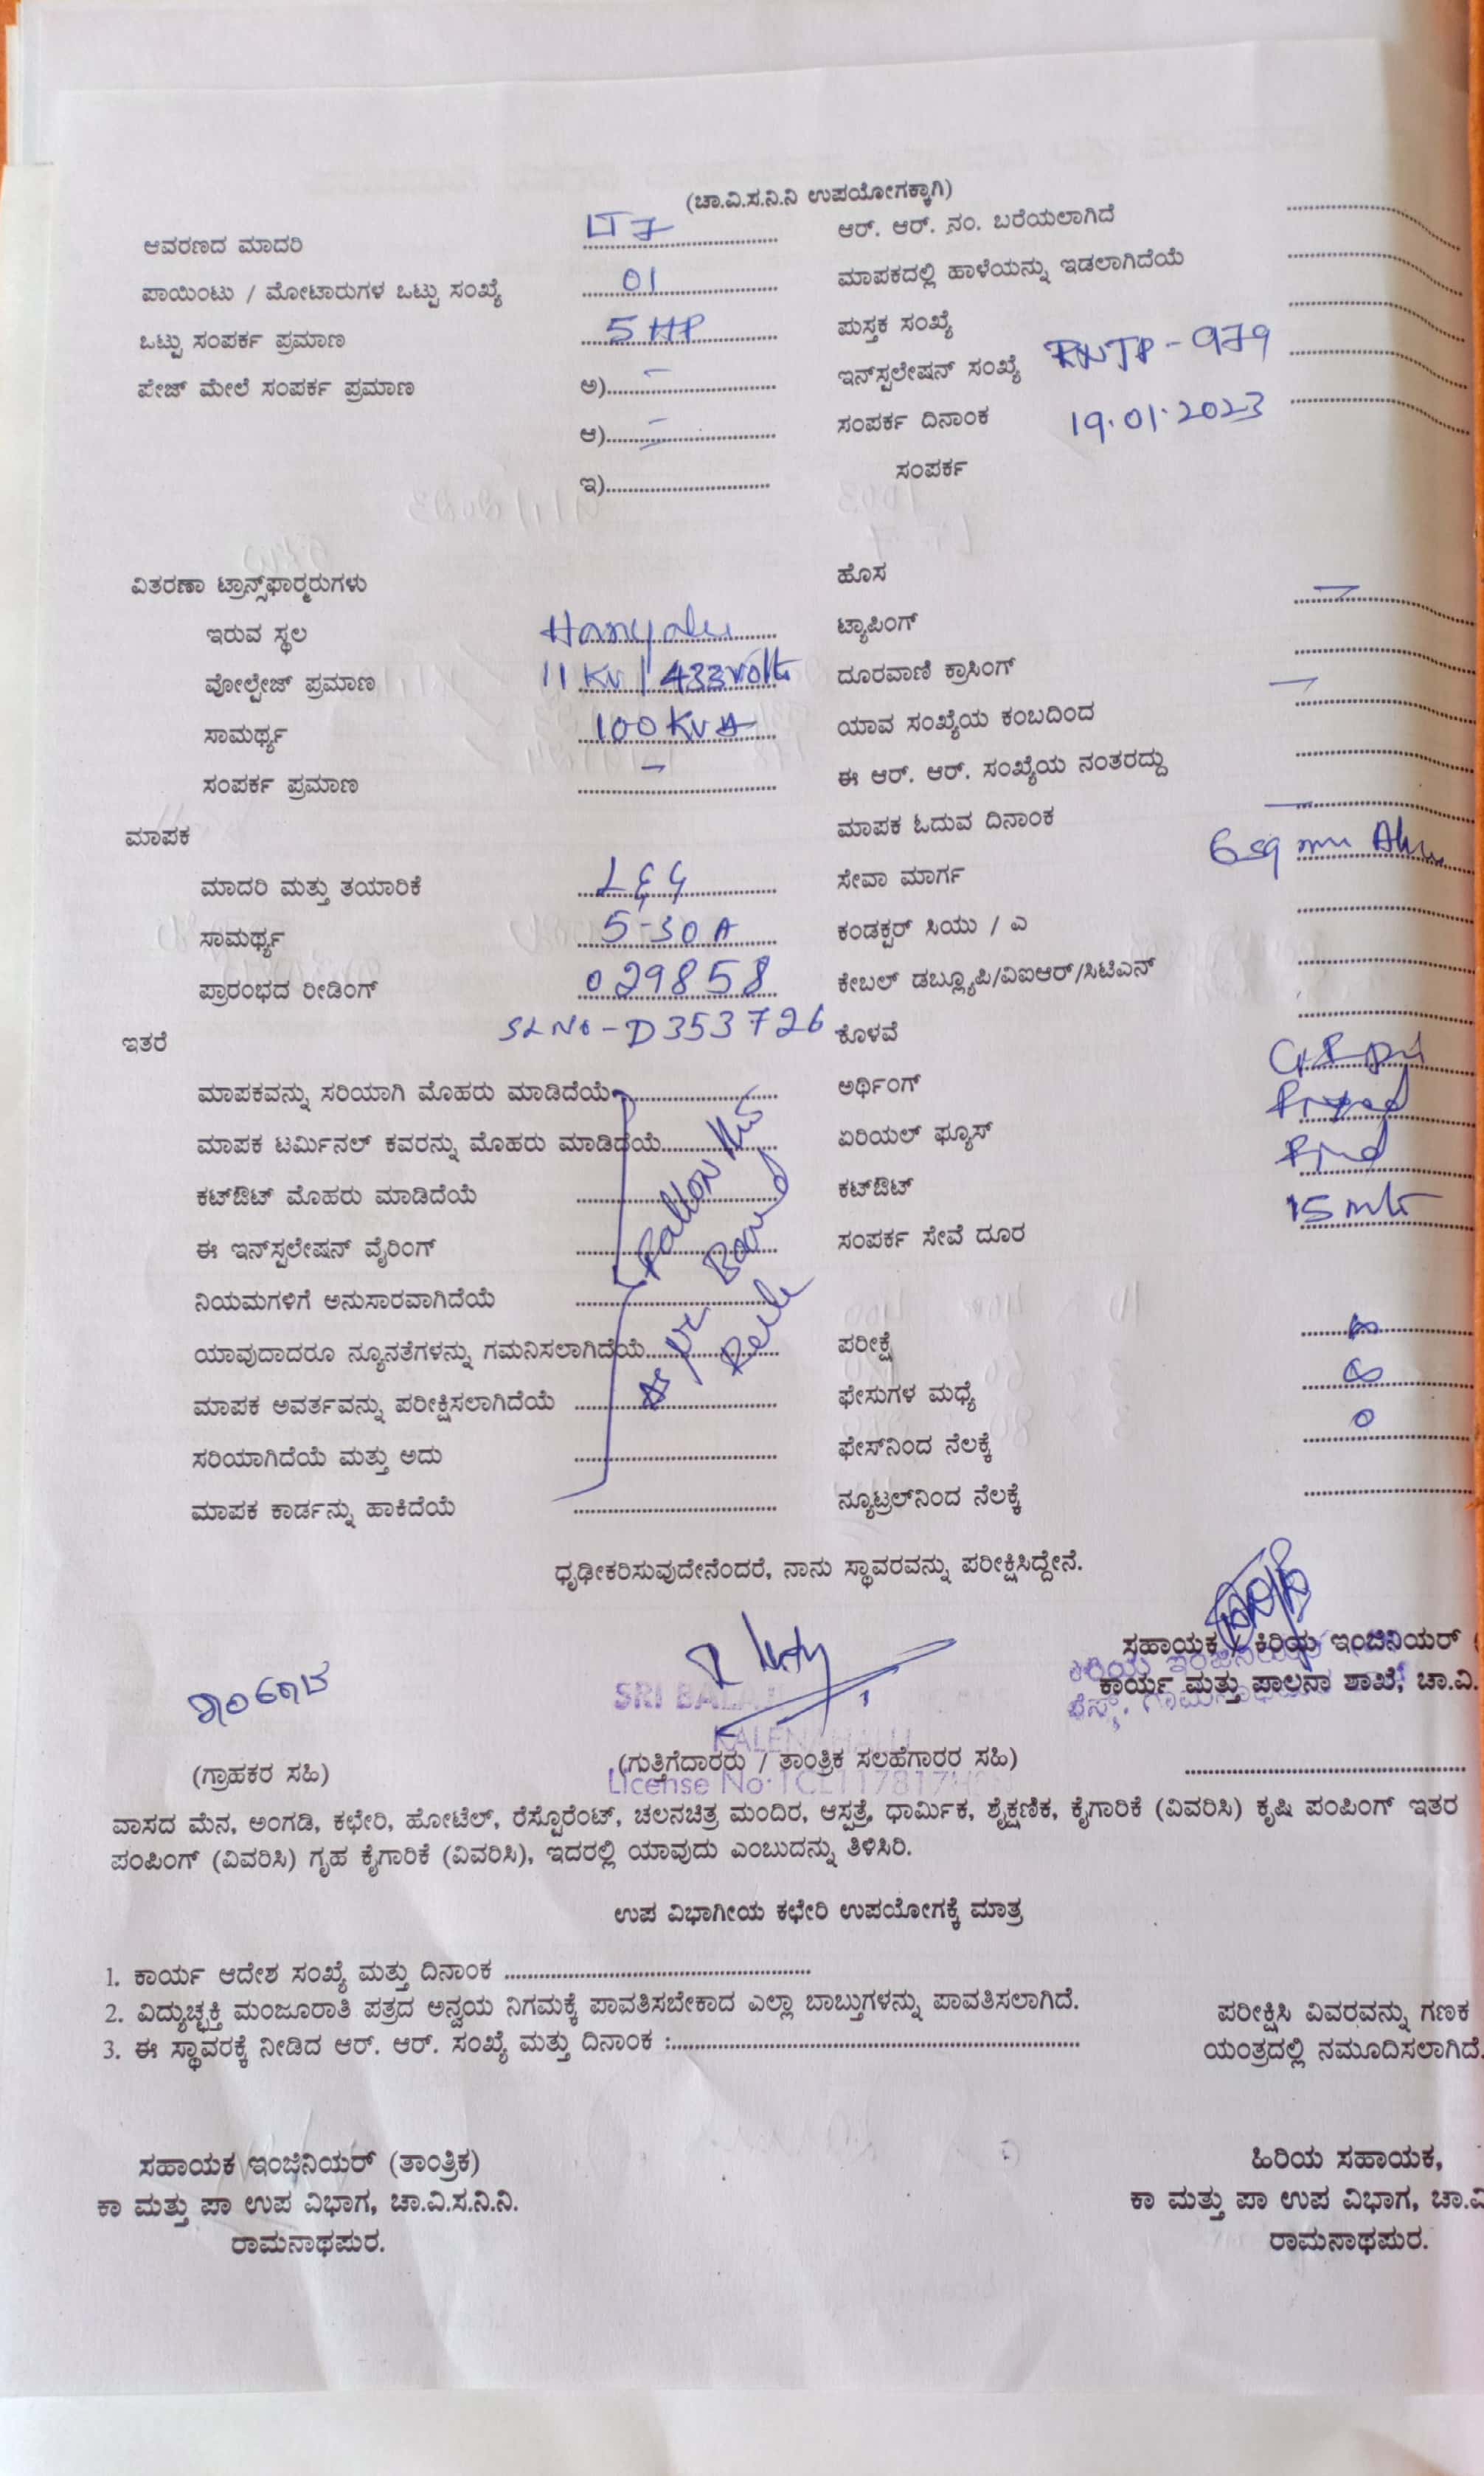 (ಚಾ.ವಿ.ಸ.ನಿ.ನಿ ಉಪಯೋಗಕ್ಕಾಗಿ)
ಆವರಣದ ಮಾದರಿ LT7
ಪಾಯಿಂಟು / ಮೋಟಾರುಗಳ ಒಟ್ಟು ಸಂಖ್ಯೆ 01
ಒಟ್ಟು ಸಂಪರ್ಕ ಪ್ರಮಾಣ 5 HP
ಪೇಜ್ ಮೇಲೆ ಸಂಪರ್ಕ ಪ್ರಮಾಣ ಅ) –
ಆ) –
ಇ)
ಆರ್. ಆರ್. ನಂ. ಬರೆಯಲಾಗಿದೆ
ಮಾಪಕದಲ್ಲಿ ಹಾಳೆಯನ್ನು ಇಡಲಾಗಿದೆಯೆ
ಪುಸ್ತಕ ಸಂಖ್ಯೆ
ಇನ್‌ಸ್ಟಲೇಷನ್ ಸಂಖ್ಯೆ RNTP-979
ಸಂಪರ್ಕ ದಿನಾಂಕ 19.01.2023
ಸಂಪರ್ಕ
ವಿತರಣಾ ಟ್ರಾನ್ಸ್‌ಫಾರ್ಮರುಗಳು
ಇರುವ ಸ್ಥಲ Hanyalu
ವೋಲ್ಟೇಜ್ ಪ್ರಮಾಣ 11 KV / 433 volt
ಸಾಮರ್ಥ್ಯ 100 KVA
ಸಂಪರ್ಕ ಪ್ರಮಾಣ –
ಮಾಪಕ
ಮಾದರಿ ಮತ್ತು ತಯಾರಿಕೆ L&G
ಸಾಮರ್ಥ್ಯ 5-30 A
ಪ್ರಾರಂಭದ ರೀಡಿಂಗ್ 029858
SL No - D353726
ಇತರೆ
ಮಾಪಕವನ್ನು ಸರಿಯಾಗಿ ಮೊಹರು ಮಾಡಿದೆಯೆ
ಮಾಪಕ ಟರ್ಮಿನಲ್ ಕವರನ್ನು ಮೊಹರು ಮಾಡಿದೆಯೆ
ಕಟ್‌ಔಟ್ ಮೊಹರು ಮಾಡಿದೆಯೆ
ಈ ಇನ್‌ಸ್ಟಲೇಷನ್ ವೈರಿಂಗ್
ನಿಯಮಗಳಿಗೆ ಅನುಸಾರವಾಗಿದೆಯೆ
ಯಾವುದಾದರೂ ನ್ಯೂನತೆಗಳನ್ನು ಗಮನಿಸಲಾಗಿದೆಯೆ
ಮಾಪಕ ಅವರ್ತವನ್ನು ಪರೀಕ್ಷಿಸಲಾಗಿದೆಯೆ
ಸರಿಯಾಗಿದೆಯೆ ಮತ್ತು ಅದು
ಮಾಪಕ ಕಾರ್ಡನ್ನು ಹಾಕಿದೆಯೆ
ಹೊಸ
ಟ್ಯಾಪಿಂಗ್
ದೂರವಾಣಿ ಕ್ರಾಸಿಂಗ್
ಯಾವ ಸಂಖ್ಯೆಯ ಕಂಬದಿಂದ
ಈ ಆರ್. ಆರ್. ಸಂಖ್ಯೆಯ ನಂತರದ್ದು
ಮಾಪಕ ಓದುವ ದಿನಾಂಕ
ಸೇವಾ ಮಾರ್ಗ 6 sq mm
ಕಂಡಕ್ಟರ್ ಸಿಯು / ಎ
ಕೇಬಲ್ ಡಬ್ಲ್ಯೂಪಿ/ವಿಐಆರ್/ಸಿಟಿಎನ್
ಕೊಳವೆ
ಅರ್ಥಿಂಗ್
ಏರಿಯಲ್ ಫ್ಯೂಸ್
ಕಟ್‌ಔಟ್
ಸಂಪರ್ಕ ಸೇವೆ ದೂರ 15 mtr
ಪರೀಕ್ಷೆ ∞
ಫೇಸುಗಳ ಮಧ್ಯೆ ∞
ಫೇಸ್‌ನಿಂದ ನೆಲಕ್ಕೆ 0
ನ್ಯೂಟ್ರಲ್‌ನಿಂದ ನೆಲಕ್ಕೆ
ಧೃಢೀಕರಿಸುವುದೇನೆಂದರೆ, ನಾನು ಸ್ಥಾವರವನ್ನು ಪರೀಕ್ಷಿಸಿದ್ದೇನೆ.
ಸಹಾಯಕ / ಕಿರಿಯ ಇಂಜಿನಿಯರ್ (
ಕಾರ್ಯ ಮತ್ತು ಪಾಲನಾ ಶಾಖೆ, ಚಾ.ವಿ.
SRI BALA
(ಗ್ರಾಹಕರ ಸಹಿ) (ಗುತ್ತಿಗೆದಾರರು / ತಾಂತ್ರಿಕ ಸಲಹೆಗಾರರ ಸಹಿ)
License No:
ವಾಸದ ಮೆನ, ಅಂಗಡಿ, ಕಛೇರಿ, ಹೋಟೆಲ್, ರೆಸ್ಟೊರೆಂಟ್, ಚಲನಚಿತ್ರ ಮಂದಿರ, ಆಸ್ಪತ್ರೆ, ಧಾರ್ಮಿಕ, ಶೈಕ್ಷಣಿಕ, ಕೈಗಾರಿಕೆ (ವಿವರಿಸಿ) ಕೃಷಿ ಪಂಪಿಂಗ್ ಇತರ
ಪಂಪಿಂಗ್ (ವಿವರಿಸಿ) ಗೃಹ ಕೈಗಾರಿಕೆ (ವಿವರಿಸಿ), ಇದರಲ್ಲಿ ಯಾವುದು ಎಂಬುದನ್ನು ತಿಳಿಸಿರಿ.
ಉಪ ವಿಭಾಗೀಯ ಕಛೇರಿ ಉಪಯೋಗಕ್ಕೆ ಮಾತ್ರ
1. ಕಾರ್ಯ ಆದೇಶ ಸಂಖ್ಯೆ ಮತ್ತು ದಿನಾಂಕ
2. ವಿದ್ಯುಚ್ಛಕ್ತಿ ಮಂಜೂರಾತಿ ಪತ್ರದ ಅನ್ವಯ ನಿಗಮಕ್ಕೆ ಪಾವತಿಸಬೇಕಾದ ಎಲ್ಲಾ ಬಾಬ್ತುಗಳನ್ನು ಪಾವತಿಸಲಾಗಿದೆ.
3. ಈ ಸ್ಥಾವರಕ್ಕೆ ನೀಡಿದ ಆರ್. ಆರ್. ಸಂಖ್ಯೆ ಮತ್ತು ದಿನಾಂಕ :
ಪರೀಕ್ಷಿಸಿ ವಿವರವನ್ನು ಗಣಕ
ಯಂತ್ರದಲ್ಲಿ ನಮೂದಿಸಲಾಗಿದೆ.
ಸಹಾಯಕ ಇಂಜಿನಿಯರ್ (ತಾಂತ್ರಿಕ)
ಕಾ ಮತ್ತು ಪಾ ಉಪ ವಿಭಾಗ, ಚಾ.ವಿ.ಸ.ನಿ.ನಿ.
ರಾಮನಾಥಪುರ.
ಹಿರಿಯ ಸಹಾಯಕ,
ಕಾ ಮತ್ತು ಪಾ ಉಪ ವಿಭಾಗ, ಚಾ.ವಿ
ರಾಮನಾಥಪುರ.